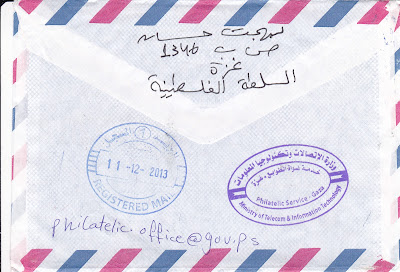 بهجت حسان
ص ب 1346
غزة
السلطة الفلسطينية
البريد المسجل
1
11-12-2013
REGISTERED MAIL
وزارة الاتصالات وتكنولوجيا المعلومات
خدمة هواة الطوابع - غزة
Philatelic Service - Gaza
Ministry of Telecom & Information Technology
philatelic.office@gov.ps